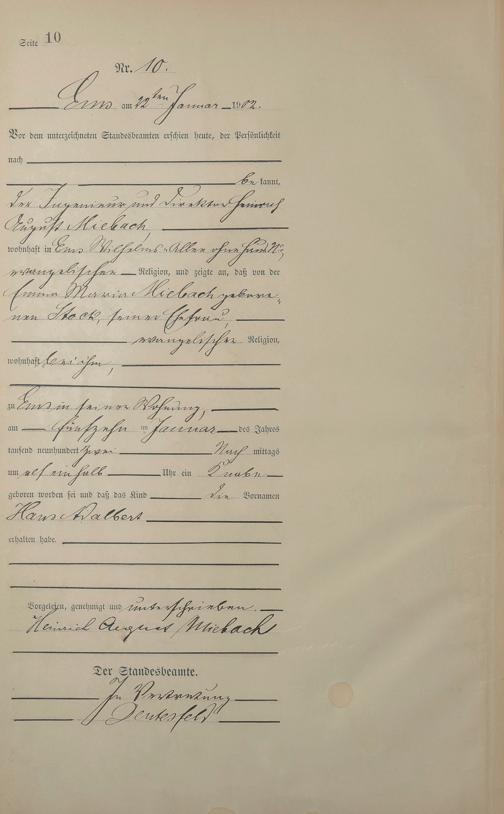 Seite 10
Nr. 10.
Ems am 22ten Januar 1902.
Vor dem unterzeichneten Standesbeamten erschien heute, der Persönlichkeit
nach
be kannt,
der Ingenieur und Direktor Heinrich
August Miebach,
wohnhaft in Ems Wilhelms-Allee ohne Haus Nr.,
evangelischer Religion, und zeigte an, daß von der
Emma Maria Miebach gebore-
nen Stock, seiner Ehefrau,
evangelischer Religion,
wohnhaft bei ihm,
zu Ems in seiner Wohnung,
am fünfzehn ten Januar des Jahres
tausend neunhundert zwei Nach mittags
um elf einhalb Uhr ein Knabe
geboren worden sei und daß das Kind die Vornamen
Hans Adalbert
erhalten habe.
Vorgelesen, genehmigt und unterschrieben.
Heinrich August Miebach
Der Standesbeamte.
In Vertretung